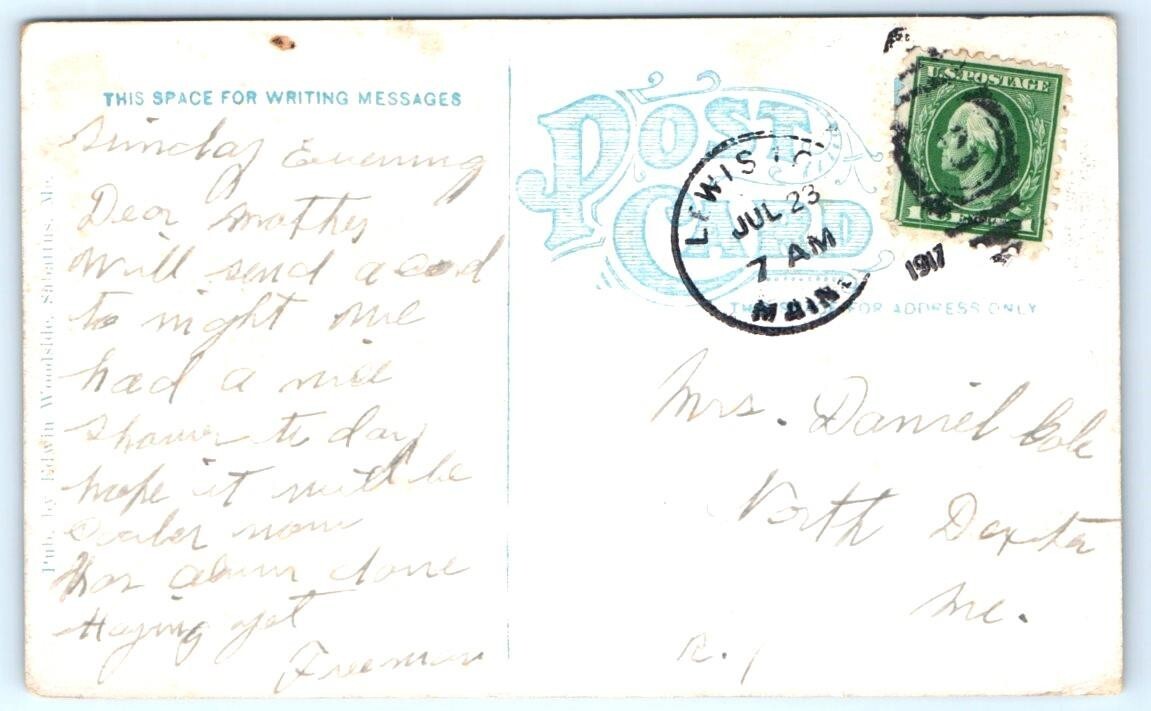 THIS SPACE FOR WRITING MESSAGES
Sunday Evening
Dear Mother
Will send a card
to night we
had a nice
shower to day
hope it will be
cooler now
Has done
Haying yet
Freeman
Pub. by Edwin Woodside, Sabattus, Me.
POST CARD
THIS FOR ADDRESS ONLY
LEWISTON
JUL 23
7 AM
MAINE
1917
U.S. POSTAGE
1 CENT 1
Mrs. Daniel Cole
North Dexter
Me.
R. 1